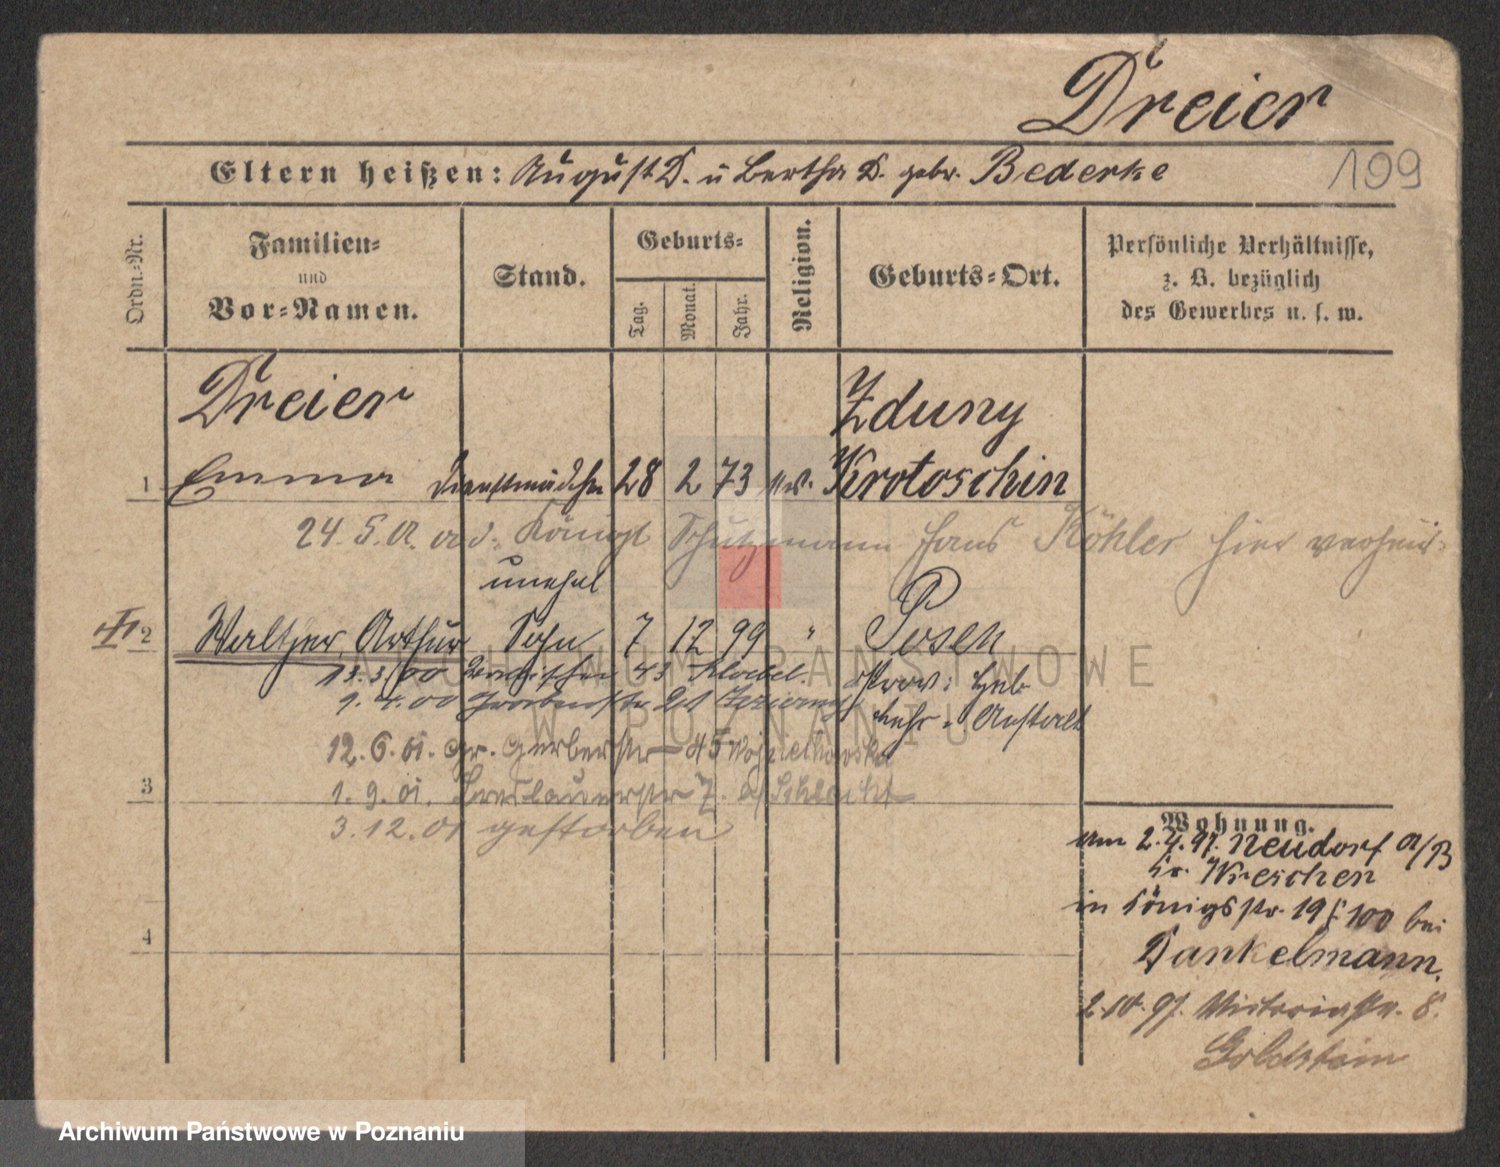 Dreier
Eltern heißen: August D. u Bertha D. gebr. Bederke
199
Ordn.-Nr.
Familien-
und
Vor-Namen.
Stand.
Geburts-
Tag.
Monat.
Jahr.
Religion.
Geburts-Ort.
Persönliche Verhältnisse,
z. B. bezüglich
des Gewerbes u. s. w.
Dreier
Zduny
1 Emma Dienstmädchen 28 2 73 ev. Krotoschin
24. 5. 01. a. d. Königl Schutzmann Hans Köhler hier verheir.
unehel
2 Walther, Arthur Sohn 7 12 99 " Posen
13. 3. 00 43
Prov: Heb
9. 4. 00 Grabenstr 21
Lehr-Anstalt
12. 6. 01. Gr. Gerberstr 45
3
1. 9. 01. Breslauerstr 7.
3. 12. 01 gestorben
4
Wohnung.
am 2. 4. 97. Neudorf a/B
Kr. Wreschen
in Königsstr. 19 100 bei
Dankelmann.
2. 10. 97. Victoriastr. 8.
Goldstein
ARCHIWUM PAŃSTWOWE
W POZNANIU
Archiwum Państwowe w Poznaniu